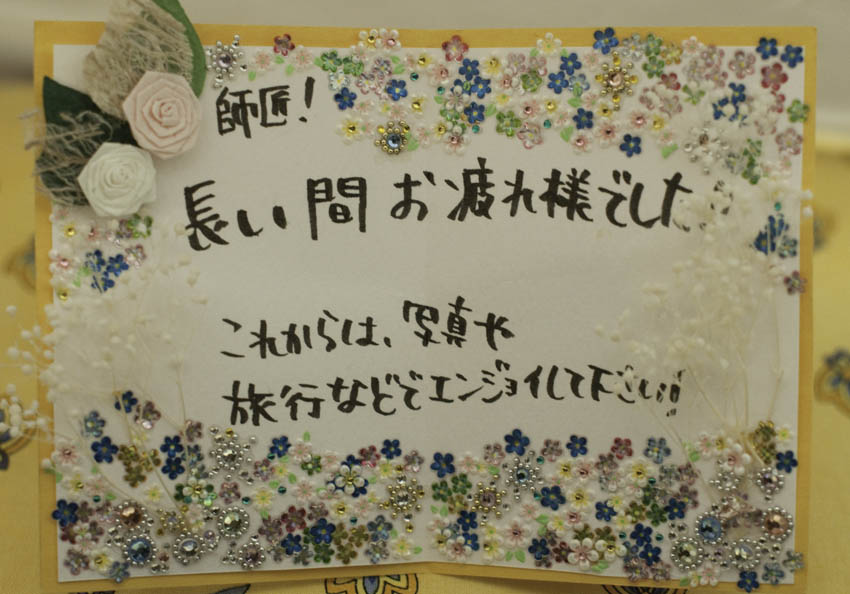 師匠!
長い間お疲れ様でした
これからは、写真や
旅行などでエンジョイして下さい!